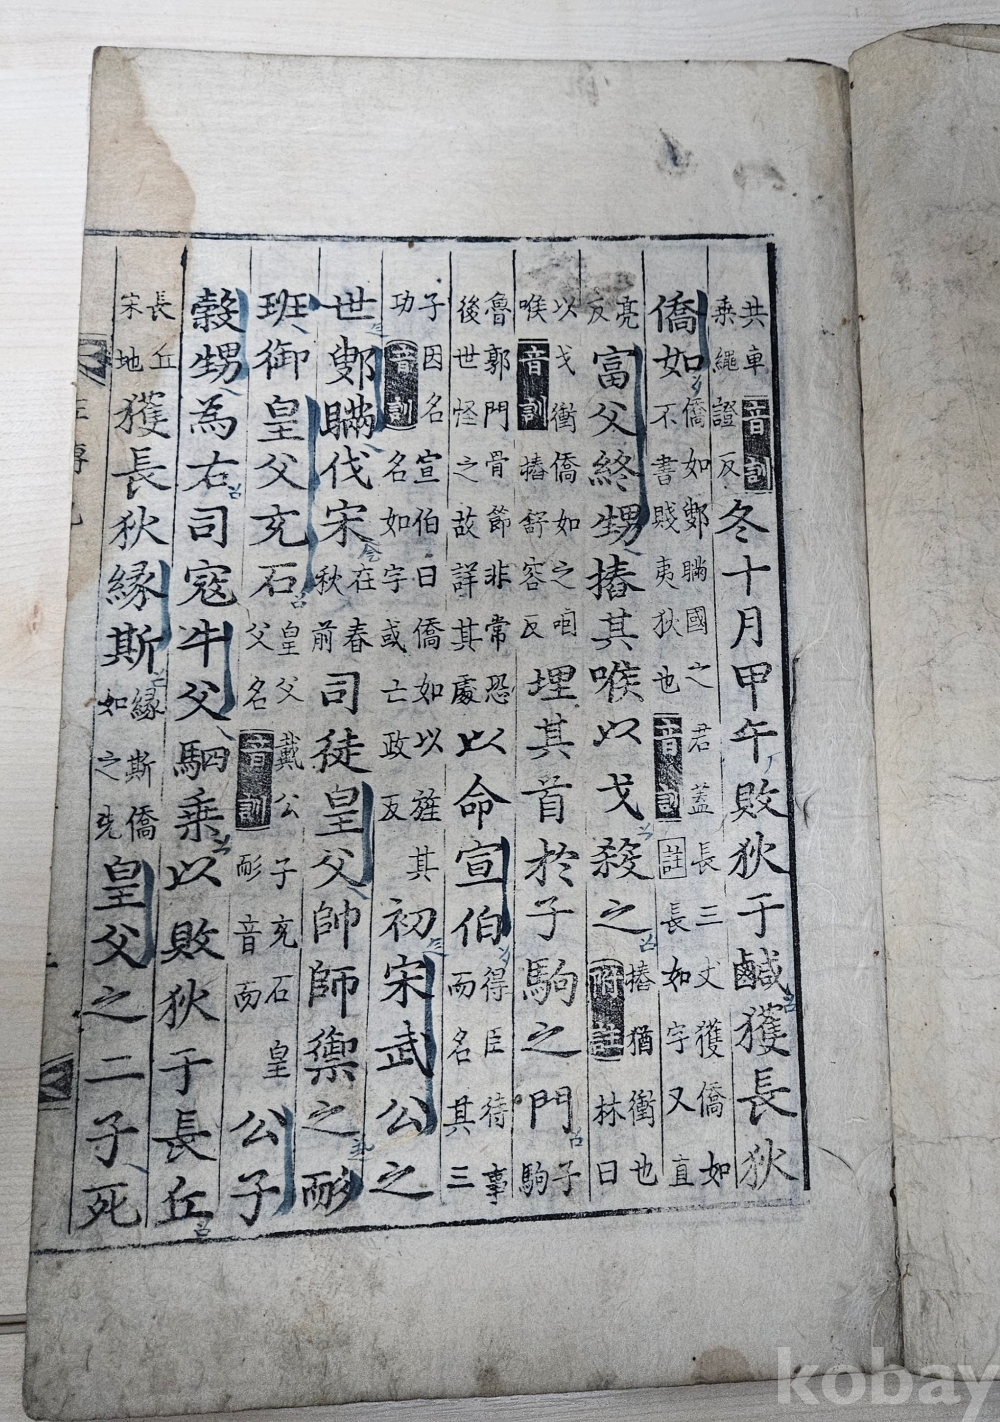 共車音訓乗繩證反冬十月甲午敗狄于鹹獲長狄
僑如僑如鄋瞞國之君蓋長三丈獲僑如不書賤夷狄也音訓註長如字又直
亮反富父終甥摏其喉以戈殺之摏猶衝也附註林曰
以戈衝僑如之咽喉音訓摏舒容反埋其首於子駒之門子駒
魯郭門骨節非常恐後世怪之故詳其處以命宣伯得臣待事而名其三
子因名宣伯曰僑如以旌其功音訓名如字或亡政反初宋武公之
世鄋瞞伐宋在春秋前司徒皇父帥師禦之耏
班御皇父充石皇父戴公子充石皇父名音訓耏音而公子
糓甥為右司寇牛父駟乗以敗狄于長丘
長丘宋地獲長狄縁斯縁斯僑如之先皇父之二子死
kobay